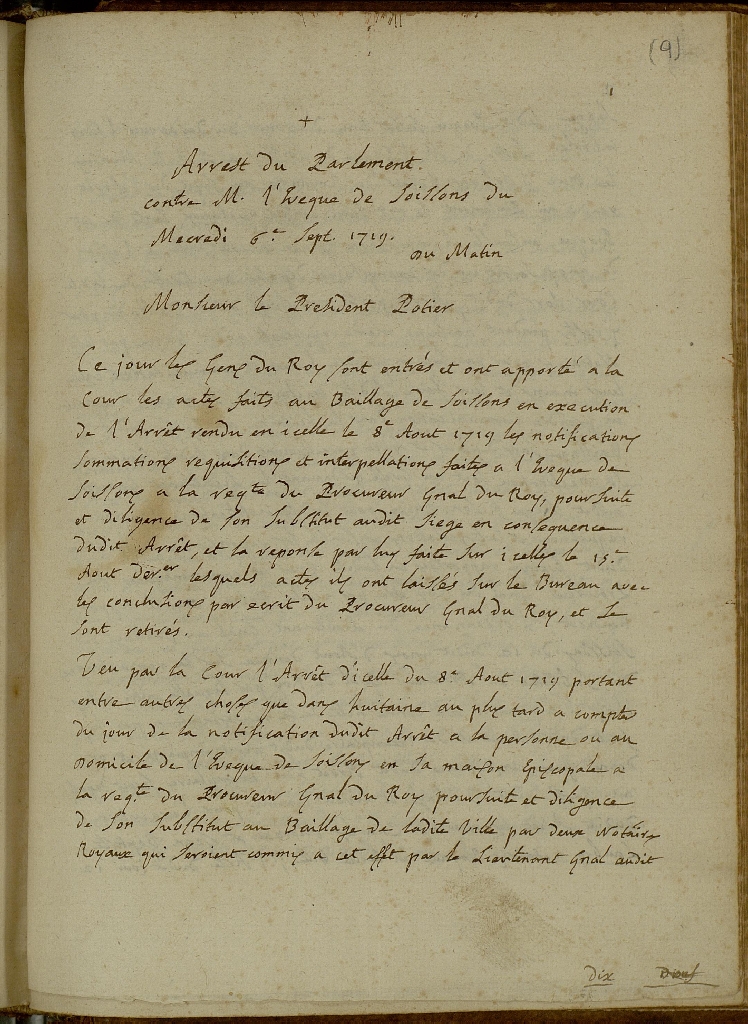 (9)
+
Arrest du Parlement.
contre M. l'Eveque de Soissons du
Mecredi 6.e Sept. 1719.
du Matin
Monsieur le President Potier
Ce jour les Gens du Roy sont entrés et ont apporté a la
Cour les actes faits au Baillage de Soissons en execution
de l'Arrêt rendu en icelle le 8.e Aout 1719 les notifications
sommations requisitions et interpellations faites a l'Eveque de
Soissons a la reqte du Procureur Gnal du Roy, poursuite
et diligence de son Substitut audit Siege en consequence
dudit Arrêt, et la reponse par luy faite sur icelles le 15.e
Aout der.er lesquels actes ils ont laissés sur le Bureau avec
les conclusions par ecrit du Procureur Gnal du Roy, et se
sont retirés.
Veu par la Cour l'Arrêt d'icelle du 8.e Aout 1719 portant
entre autres choses que dans huitaine au plus tard a compter
du jour de la notification dudit Arrêt a la personne ou au
domicile de l'Eveque de Soissons en sa maison Episcopale a
la reqte du Procureur Gnal du Roy poursuite et diligence
de son Substitut au Baillage de ladite Ville par deux Notaires
Royaux qui seroient commis a cet effet par le Lieutenant Gnal audit
dix